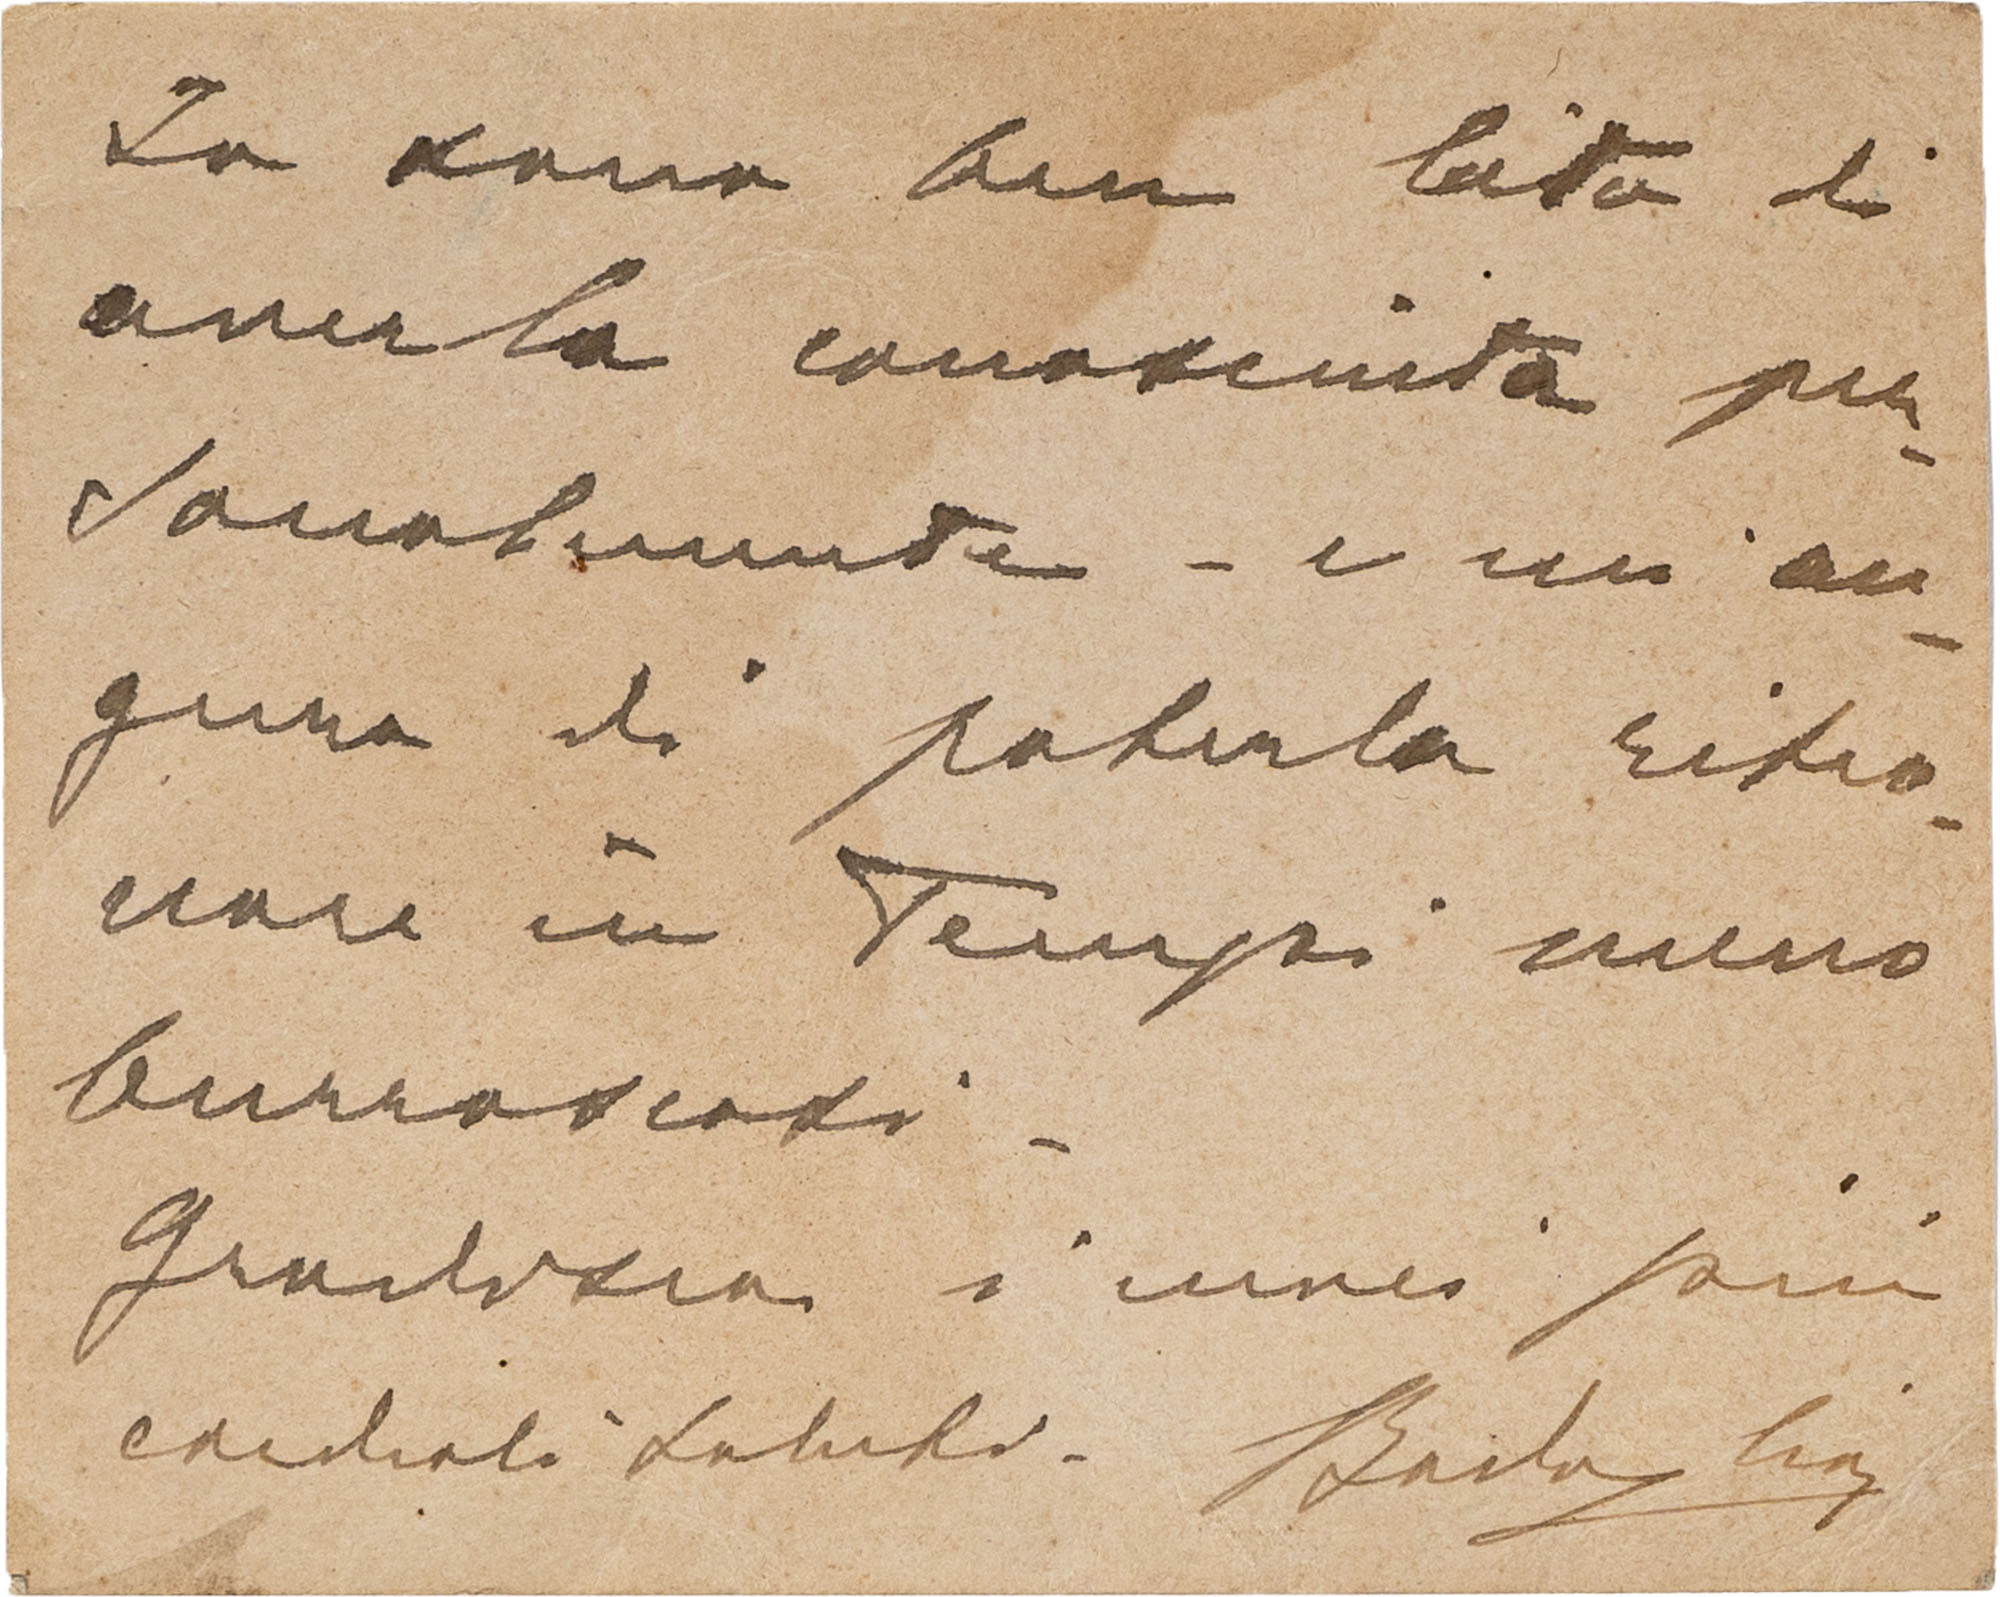 Io sono ben lieto di
averla conosciuta per-
sonalmente - e mi au-
guro di poterla ritro-
vare in Tempi meno
burrascosi -
Gradisca i miei più
cordiali saluti - Badoglio